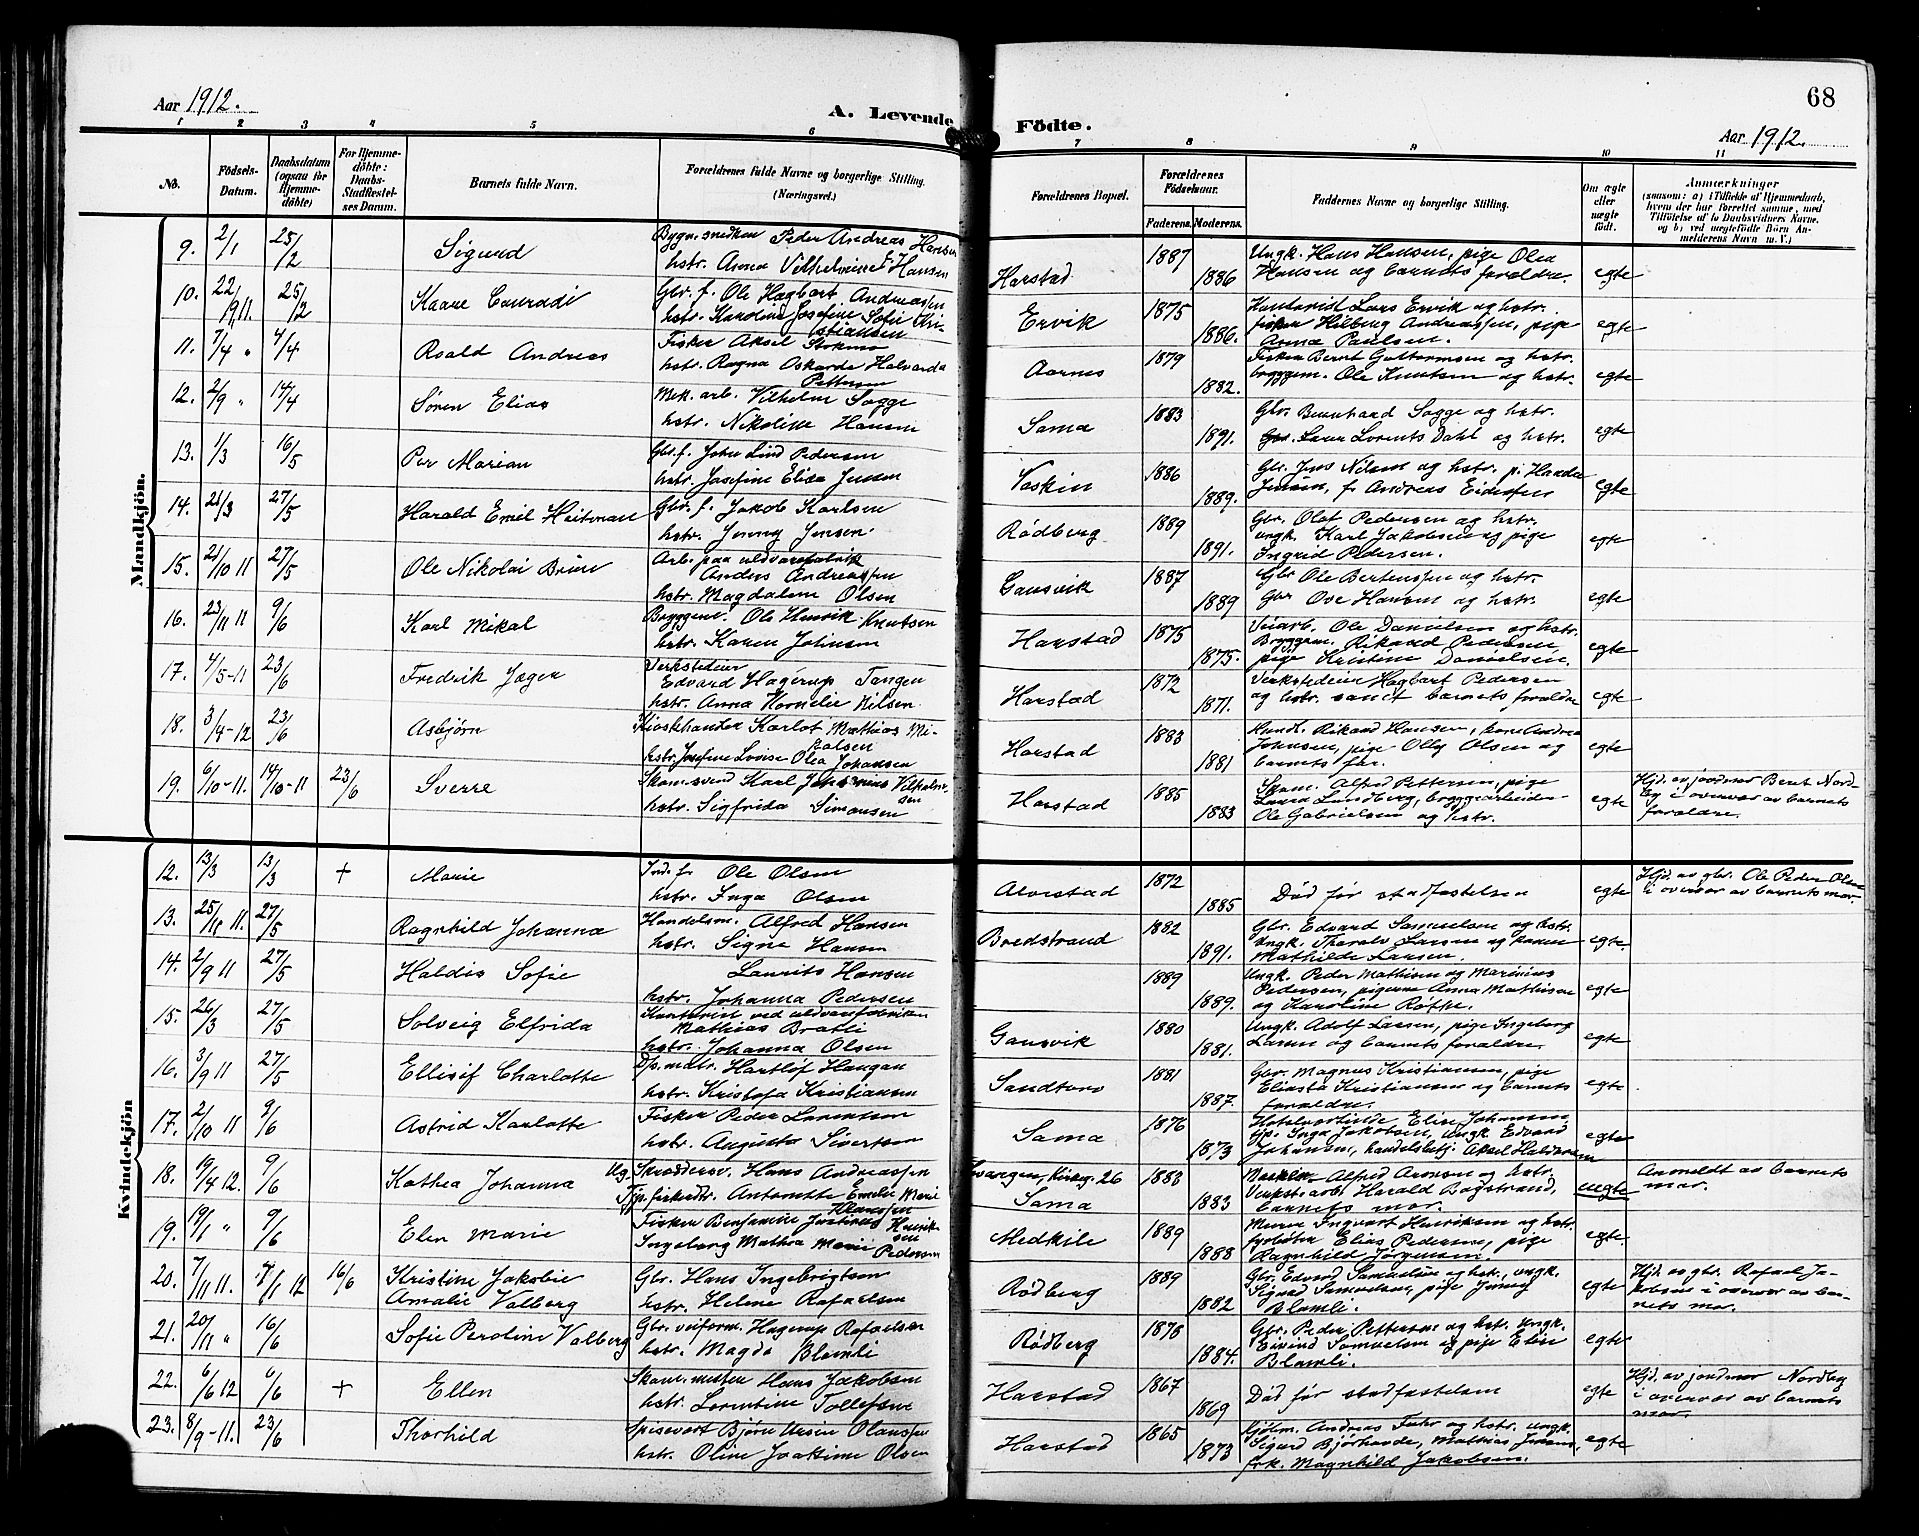 68
Aar 1912.
A. Levende Födte.
Aar 1912
1 2 3 4 5 6 7 8 9 10 11
No.
Födsels-Datum.
Daabsdatum (ogsaa for Hjemmedöbte)
For Hjemmedöbte: Daabs-Stadfæstelses Datum.
Barnets fulde Navn.
Forældrenes fulde Navne og borgerlige Stilling. (Næringsvei.)
Forældrenes Bopæl.
Forældrenes Födselsaar.
Faderens. Moderens.
Faddernes Navne og borgerlige Stilling.
Om ægte eller uægte födt.
Anmærkninger
(saasom: a) i Tilfælde af Hjemmedaab, hvem der har forrettet samme, med Tilföielse af to Daabsvidners Navne. og b) ved uægtefödte Börn Anmelderens Navn m. V.)
Mandkjön.
9. 2/1 25/2 Sigurd Bygn.snedker Peder Andreas Hansen
hstr. Anna Vilhelmine F. Hansen
Harstad 1887 1886 Ungk. Hans Hansen, pige Olea
Hansen og barnets forældre. egte
10. 22/1911. 25/2 Kaare Conradi Gbr. f. Ole Hagbart Andreassen
hstr. Karoline Josefine Sofie Kristiansen
Ervik 1875 1886. Lars Ervik og hstr.
fisker Hilberg Andreassen, pige
Anna Paulsen. egte
11. 7/4 " 4/4 Roald Andreas Fisker Aksel Stokmo
hstr. Ragna Oskarda Halvarda Pettersen
Aarnes 1879 1882. Fisker Bernt Guttormsen og hstr.
byggem. Ole Knutsen og hstr. egte
12. 2/9 " 14/4 Søren Elias Mek. arb. Vilhelm Sagge
hstr. Nikoline Hansen
Sama 1883 1891. Gbr. Bernhard Sagge og hstr.
Lorents Dahl og hstr. egte
13. 1/3 16/5 Per Marian Gbr. f. John Lind Pedersen
hstr. Josefine Elisa Jensen
Voskin 1886 1889. Gbr. Jens Nilsen og hstr. p. Handa
Jensen, f. Andreas Eidissen egte
14. 21/3 27/5 Harald Emil Heitman Gbr. f. Jakob Karlsen
hstr. Jenny Jensen.
Rødberg 1889 1891. Gbr. Olaf Pedersen og hstr.
ungk. Karl Jakobsen og pige
Ingrid Pedersen. egte
15. 21/10 11 27/5 Ole Nikolai Brun Arb. paa uldvarefabrik
Anders Andreassen
hstr. Magdalene Olsen
Gansvik 1887 1889 Gbr Ole Bertenssen og hstr.
Gbr Ove Hansen og hstr. egte
16. 23/11 11 9/6 Karl Mikal Byggem. Ole Henrik Knutsen
hstr. Karen Johnsen
Harstad 1875 1875. Ole Danielsen og hstr.
Byggem. Rikard Pedersen
pige Kristine Danielsen. egte
17. 4/5-11 23/6 Fredrik Jæger Verkstedeier
Edvard Hagerup Tangen
hstr. Anna Kornelie Nilsen.
Harstad 1872 1871. Verkstedeier Hagbart Pedersen
og hstr. samt barnets forældre egte
18. 3/4-12 23/6 Asbjørn Kioskhandler Karlot Mathias Mikalsen
hstr. Josefine Lovise Olea Johansen
Harstad 1883 1881 Handl. Rikard Hansen, kone Andrea
Johnsen, pige Olly Olsen og
barnets far. egte
19. 6/10-11. 14/10-11 23/6 Sverre Skom.svend Karl Johannius Vilhelmsen
hstr. Sigfrida Simonsen
Harstad 1885 1883 Skom. Alfred Pettersen, pige
Laura Lundberg, byggearbeider
Ole Gabrielsen og hstr. egte Hjd. av jordmor Berit Nordby i overvær av barnets
forældre.
Kvindekjön
12. 13/3 13/3 + Marie Ole Olsen
hstr. Inga Olsen
Alvestad 1872 1885 Död før stadfæstelsen egte Hjd. av gbr. Ole Peder Olsen
i overvær av barnets mor.
13. 25/11 11. 27/5 Ragnhild Johanna Handelsm. Alfred Hansen
hstr. Signe Hansen
Bredstrand 1882 1891. Gbr. Edvard Samuelsen og hstr.
ungk. Tharald Larsen og konen
Mathilde Larsen. egte.
14. 2/9 11 27/5 Haldis Sofie Laurits Hansen
hstr. Johanna Pedersen
1889 1889. Ungk. Peder Mathisen og Marinius
Pedersen, pigerne Anna Mathisen
og Karoline Røthe. egte
15. 26/3 27/5 Solveig Elfrida Kontorist ved uldvarefabriken
Mathias Bratli
hstr. Johanna Olsen
Gansvik 1880 1881. Ungk. Adolf Larsen, pige Ingeborg
Larsen og barnets forældre. egte
16. 3/9 11 27/5 Ellisif Charlotte Dp.mdtr. Hartlöf Haugan
hstr. Kristofa Kristiansen
Sandtorv 1881 1887. Gbr. Magnus Kristiansen, pige
Eliasta Kristiansen og barnets
forældre. egte
17. 2/10 11 9/6 Astrid Karlotte Fisker Peder Lorentsen
hstr. Augusta Sivertsen
Sama 1876 1873 Hotelvertinde Elise Johansen
tjp. Inga Jakobsen, ungk. Edvard
Johansen, handelsbetj. Aksel Haldorsen egte
18. 19/4 12. 9/6 Kathea Johanna Ug. Hans Andreassen
Tjp. Antonette Emelie Marie Klaussen
Kirseg. 26
Sama 1883 1883 Alfred Aronsen og hstr.
Verkst.arb. Harald Bogstrand,
barnets mor. uegte Anmeldt av barnets
mor.
19. 19/1 " 9/6 Elen Marie Fisker Benjamin Justinus Henriksen
Ingeborg Mathea Marie Pedersen
Medkile 1889 1888 Murer Ingvart Henriksen og hstr.
fyrbøter Elias Pedersen, pige
Ragnhild Jørgensen. egte
20. 7/11 11. 7/1 12 16/6 Kristine Jakobie
Amalie Valberg Gbr. Hans Ingebrigtsen
hstr. Helene Rafaelsen
Rødberg 1889 1882 Gbr. Edvard Samuelsen og hstr., ungk.
Sigurd Samuelsen, pige Jenny
Blamli. egte Hjd. av gbr. Rafael Jakobsen i overvær av barnets mor.
21. 20/11 " 16/6 Sofie Peroline Valberg Gbr. veiform. Hagerup Rafaelsen
hstr. Magda Blamli
Rødberg 1878 1884. Gbr. Peder Pettersen og hstr. ungk.
Eivind Samuelsen og pige Elise
Blamli. egte
22. 6/6 12 6/6 + Ellen Skom.mester Hans Jakobsen
hstr. Lorentine Tollefsen
Harstad 1867 1869 Död før stadfæstelsen egte Hjd. av jordmor Nordby
i overvær av barnets
mor.
23. 8/9-11. 23/6 Thorhild Spisevert Bjørn Ursin Olaussen
hstr. Oline Joakime Olsen
Harstad 1865 1873 Kjøbm. Andreas Fuhr og hstr. ungk.
Sigurd Bjørhovde, Mathias Jensen,
frk. Magnhild Jakobsen. egte